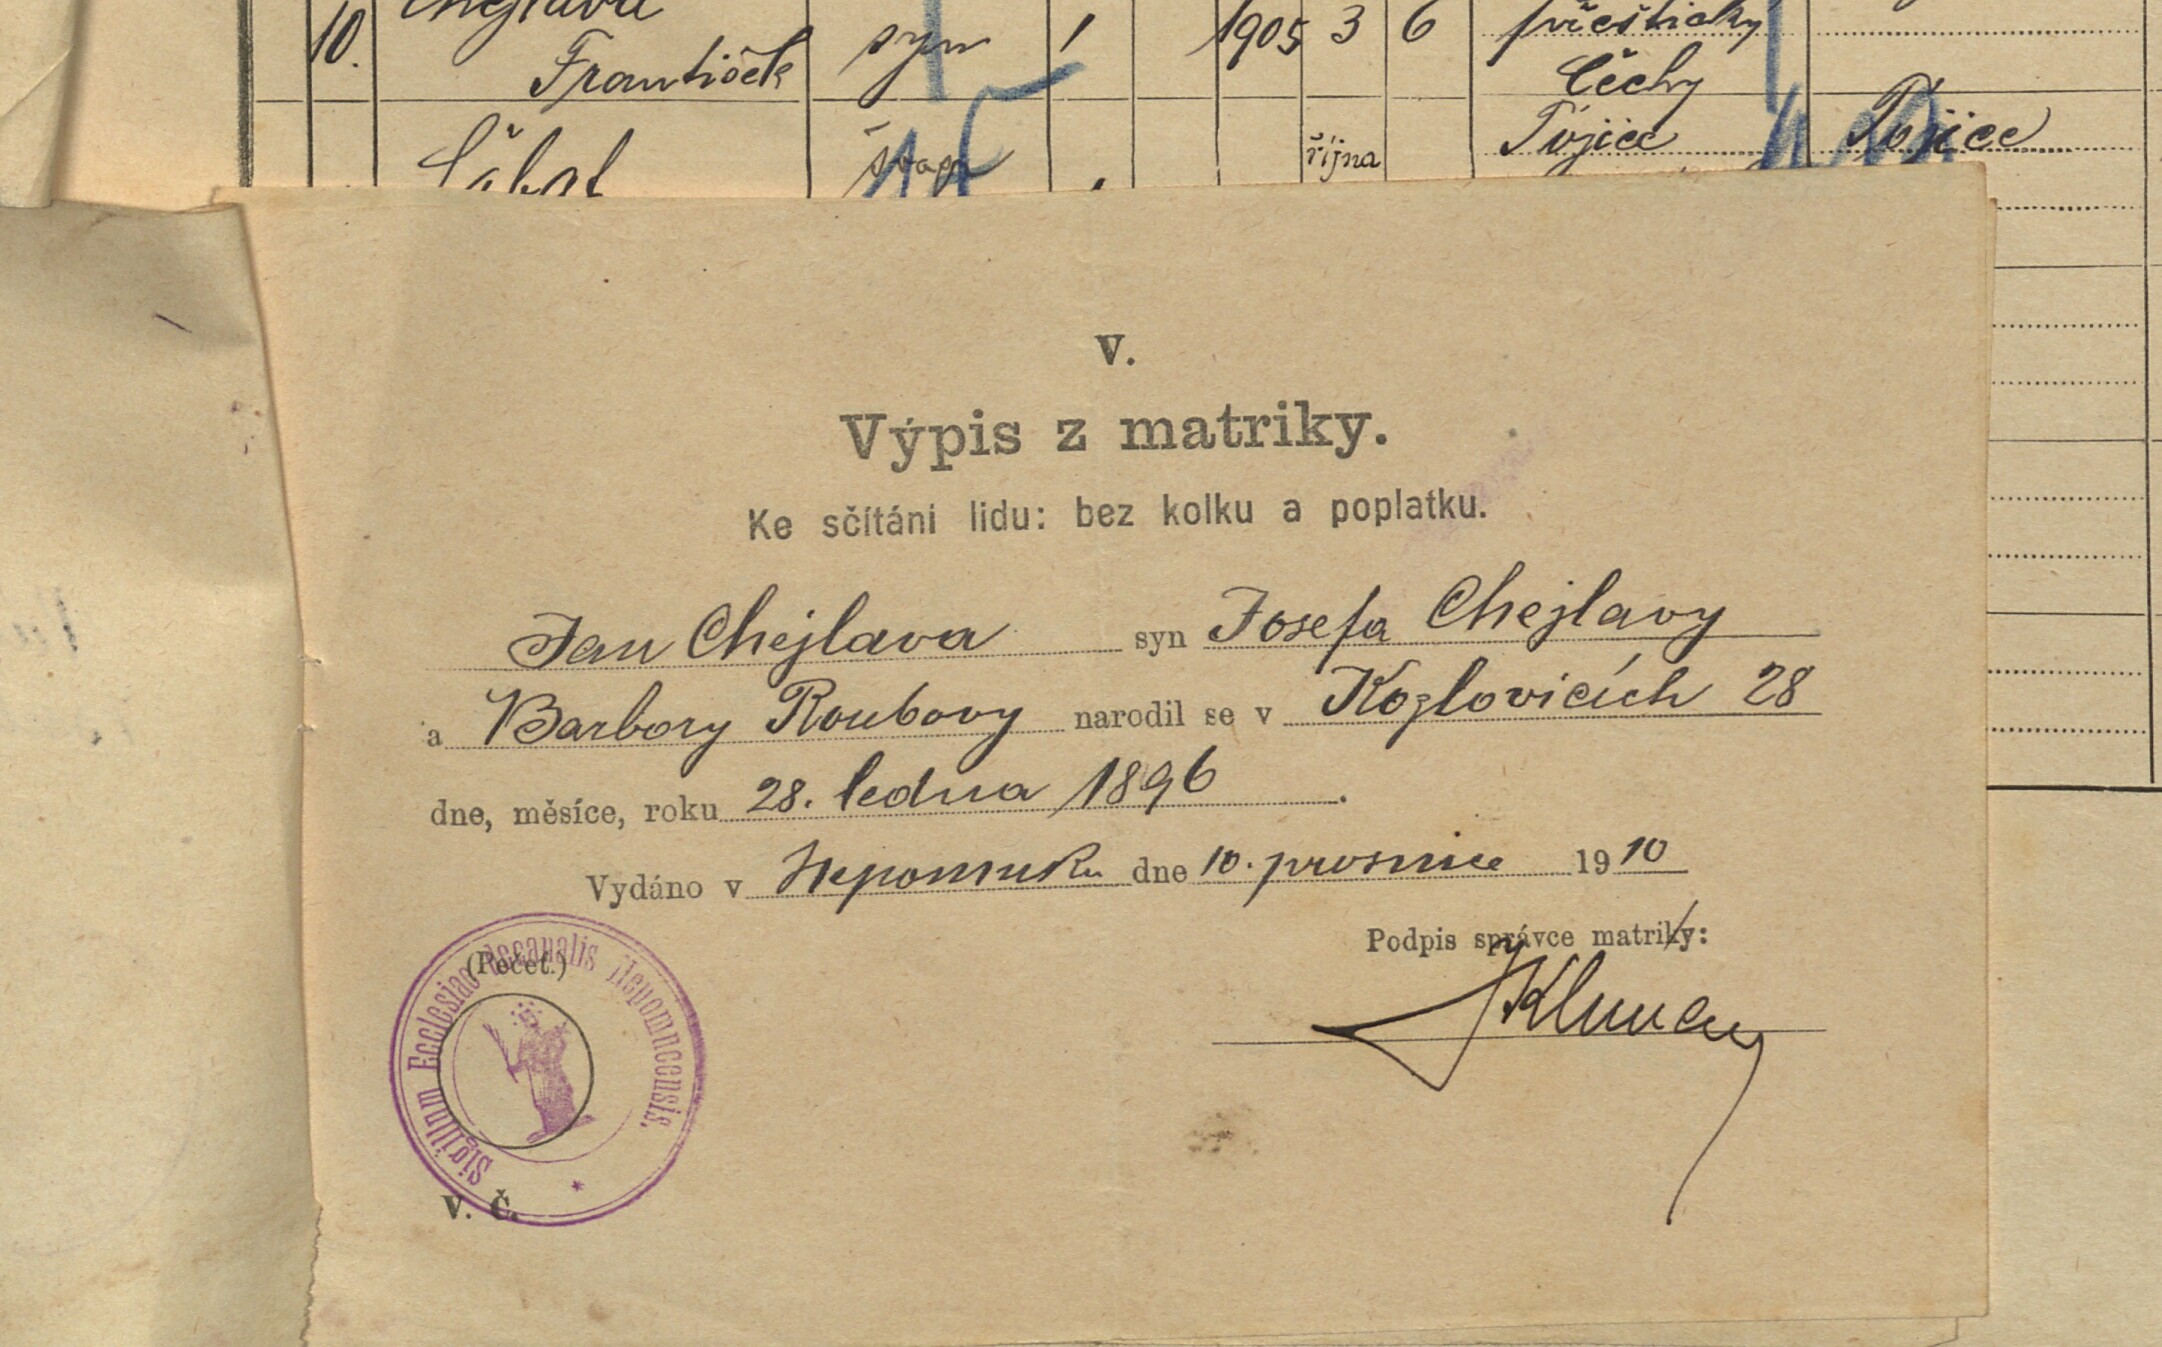 10. Chejlava
František syn / 1905 3 6 přeštický
Čechy
Čábat švagr října Tojice Tojice
V.
Výpis z matriky.
Ke sčítání lidu: bez kolku a poplatku.
Jan Chejlava syn Josefa Chejlavy
a Barbory Roubovy narodil se v Kozlovicích 28
dne, měsíce, roku 28. ledna 1896.
Vydáno v Nepomuku dne 10. prosince 1910
Podpis správce matriky:
(Pečeť.)
Sigillum Ecclesiae decanalis Nepomucensis.
V. Č.